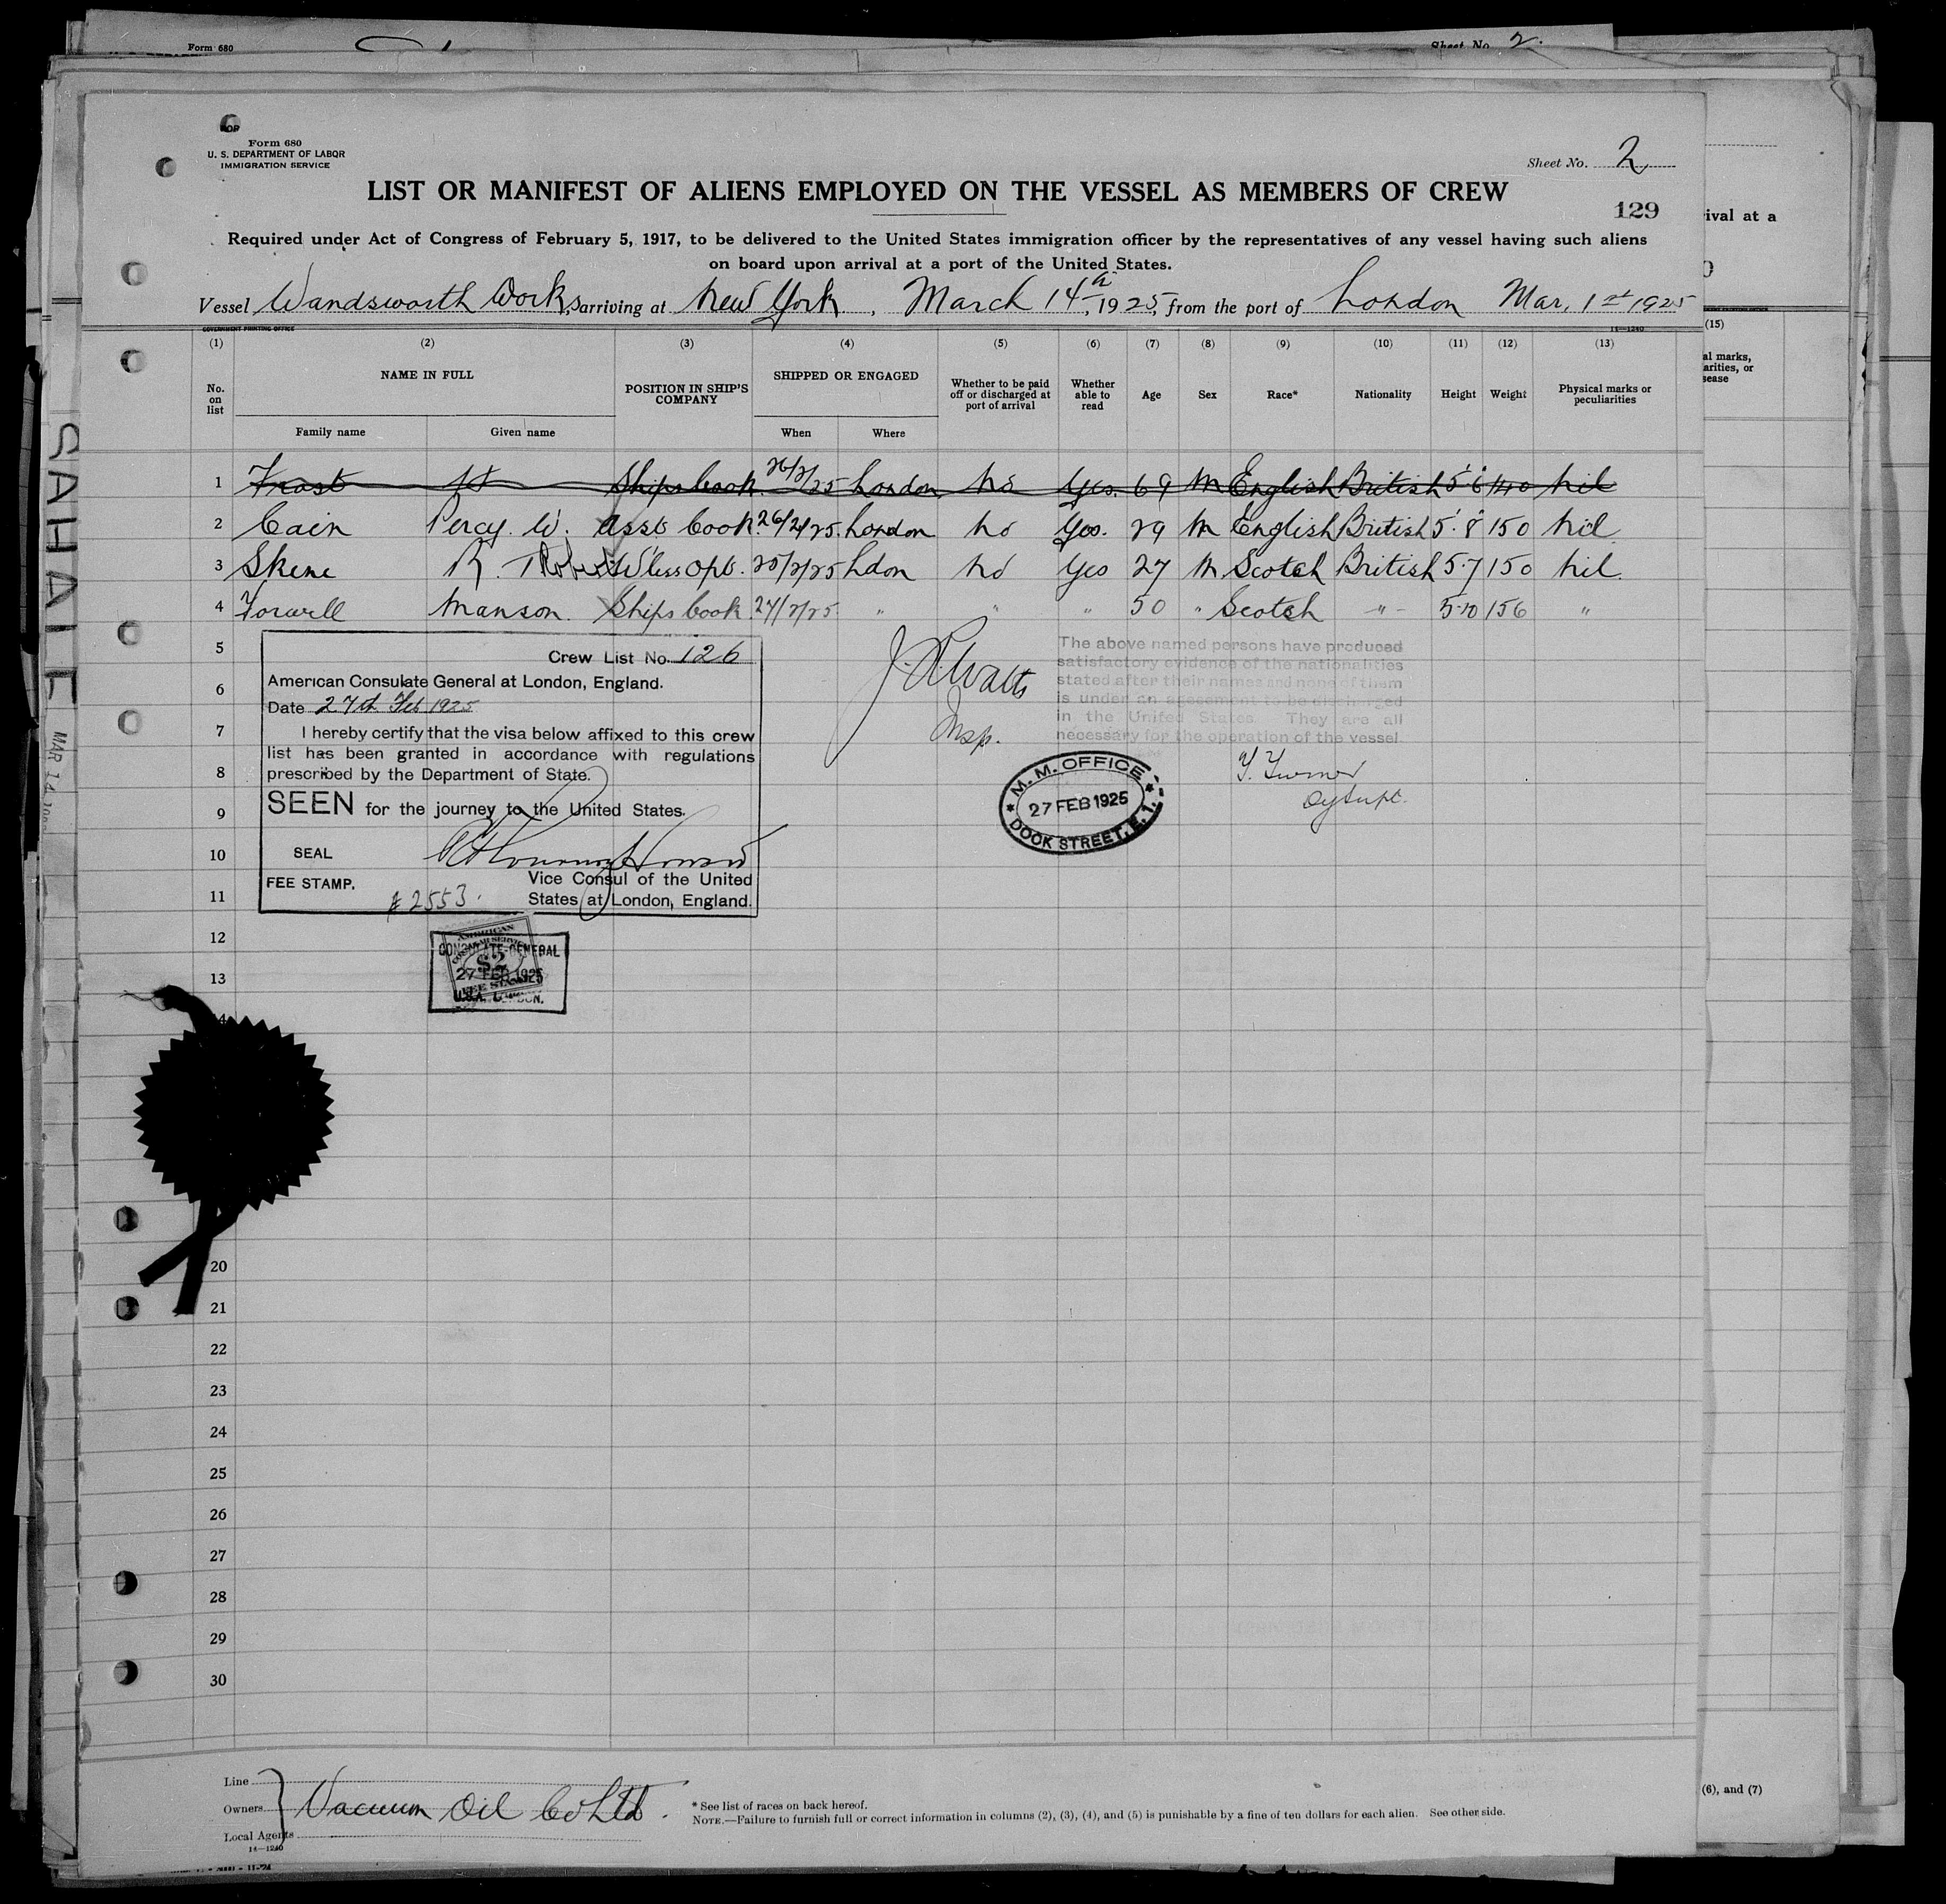 Form 680
Sheet No. 2.
Form 680
U. S. DEPARTMENT OF LABOR
IMMIGRATION SERVICE
Sheet No. 2
LIST OR MANIFEST OF ALIENS EMPLOYED ON THE VESSEL AS MEMBERS OF CREW
129
ival at a
Required under Act of Congress of February 5, 1917, to be delivered to the United States immigration officer by the representatives of any vessel having such aliens
on board upon arrival at a port of the United States.
Vessel Wandsworth Works, arriving at New York, March 14th, 1925, from the port of London Mar, 1st 1925
GOVERNMENT PRINTING OFFICE
14—1240
(1) (2) (3) (4) (5) (6) (7) (8) (9) (10) (11) (12) (13) (15)
No. on list
NAME IN FULL
Family name
Given name
POSITION IN SHIP'S COMPANY
SHIPPED OR ENGAGED
When
Where
Whether to be paid off or discharged at port of arrival
Whether able to read
Age
Sex
Race*
Nationality
Height
Weight
Physical marks or peculiarities
al marks,
arities, or
sease
1 Frost Ships Cook. 26/2/25 London No Yes. 69 M English British 5'6" 140 Nil
2 Cain Percy. W. Asst Cook. 26/2/25. London No Yes. 29 M English British 5'.8" 150 Nil
3 Skene R. T Robert W'less Opt. 25/2/25 Ldon No Yes 27 M Scotch British 5.7 150 Nil.
4 Forwell Manson. Ships Cook. 27/2/25. " " " 50 " Scotch " 5.10 156 "
5
6
7
8
9
10
11
12
13
14
20
21
22
23
24
25
26
27
28
29
30
Crew List No. 126
American Consulate General at London, England.
Date 27th Feb 1925
I hereby certify that the visa below affixed to this crew
list has been granted in accordance with regulations
prescribed by the Department of State.
SEEN for the journey to the United States.
SEAL
FEE STAMP.
Vice Consul of the United
States at London, England.
# 2553.
J. R. Watts
Insp.
The above named persons have produced
satisfactory evidence of the nationalities
stated after their names and none of them
is under an agreement to be discharged
in the United States. They are all
necessary for the operation of the vessel
M. M. OFFICE
27 FEB 1925
DOCK STREET, E. 1.
Y. Turner
Dy Supt.
AMERICAN
CONSULAR SERVICE
$2
FEE STAMP
CONSULATE-GENERAL
27 FEB 1925
U.S.A. LONDON.
MAR 14
Line
Owners
Local Agents
Vacuum Oil Co Ltd.
14—1240
* See list of races on back hereof.
NOTE.—Failure to furnish full or correct information in columns (2), (3), (4), and (5) is punishable by a fine of ten dollars for each alien. See other side.
(6), and (7)